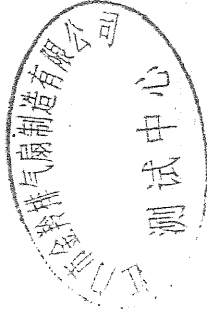 江门市金羚排气扇制造有限公司
测试中心